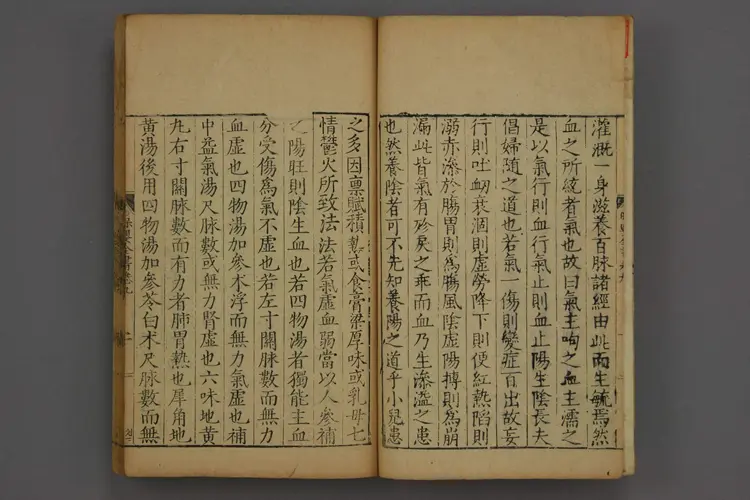 灌溉一身滋養百脉諸經由此而生毓焉然
血之所統者氣也故曰氣主呴之血主濡之
是以氣行則血行氣止則血止陽生陰長夫
倡婦隨之道也若氣一傷則變症百出故妄
行則吐衂衰涸則虛勞降下則便紅熱陷則
溺赤滲於腸胃則為腸風陰虛陽搏則為崩
漏此皆氣有殄戾之乖而血乃生滲溢之患
也然養陰者可不先知養陽之道乎小兒患
之多因禀賦積熱或食膏粱厚味或乳母七
情鬱火所致法法若氣虛血弱當以人參補
之陽旺則陰生血也若四物湯者獨能主血
分受傷爲氣不虛也若左寸關脉數而無力
血虛也四物湯加參术浮而無力氣虛也補
中益氣湯尺脉數或無力腎虛也六味地黄
丸右寸關脉數而有力者肺胃熱也犀角地
黄湯後用四物湯加參苓白术尺脉數而無